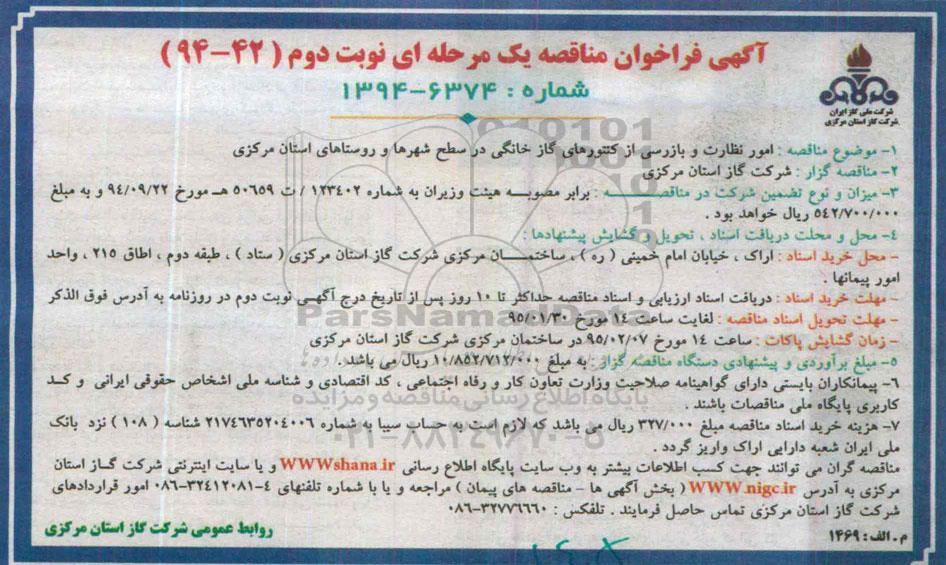 آگهی فراخوان مناقصه یک مرحله ای نوبت دوم ( ۴۲-۹۴ )
شماره : ۶۳۷۴-۱۳۹۴
شرکت ملی گاز ایران
شرکت گاز استان مرکزی
۱- موضوع مناقصه : امور نظارت و بازرسی از کنتورهای گاز خانگی در سطح شهرها و روستاهای استان مرکزی
۲- مناقصه گزار : شرکت گاز استان مرکزی
۳- میزان و نوع تضمین شرکت در مناقصه : برابر مصوبه هیئت وزیران به شماره ۱۲۳۴۰۲ / ت ۵۰۶۵۹ هـ مورخ ۹۴/۰۹/۲۲ و به مبلغ
۵۴۲/۷۰۰/۰۰۰ ریال خواهد بود .
۴- محل و محلت دریافت اسناد ، تحویل و گشایش پیشنهادها :
- محل خرید اسناد : اراک ، خیابان امام خمینی ( ره ) ، ساختمان مرکزی شرکت گاز استان مرکزی ( ستاد ) ، طبقه دوم ، اطاق ۲۱۵ ، واحد
امور پیمانها .
- مهلت خرید اسناد : دریافت اسناد ارزیابی و اسناد مناقصه حداکثر تا ۱۰ روز پس از تاریخ درج آگهی نوبت دوم در روزنامه به آدرس فوق الذکر
- مهلت تحویل اسناد مناقصه : لغایت ساعت ۱۴ مورخ ۹۵/۰۱/۳۰
- زمان گشایش پاکات : ساعت ۱۴ مورخ ۹۵/۰۲/۰۷ در ساختمان مرکزی شرکت گاز استان مرکزی
۵- مبلغ برآوردی و پیشنهادی دستگاه مناقصه گزار : به مبلغ ۱۰/۸۵۲/۷۱۲/۰۰۰ ریال می باشد .
۶- پیمانکاران بایستی دارای گواهینامه صلاحیت وزارت تعاون کار و رفاه اجتماعی ، کد اقتصادی و شناسه ملی اشخاص حقوقی ایرانی و کد
کاربری پایگاه ملی مناقصات باشند .
۷- هزینه خرید اسناد مناقصه مبلغ ۳۲۷/۰۰۰ ریال می باشد که لازم است به حساب سیبا به شماره ۲۱۷۴۶۳۵۲۰۴۰۰۶ شناسه ( ۱۰۸ ) نزد بانک
ملی ایران شعبه دارایی اراک واریز گردد .
مناقصه گران می توانند جهت کسب اطلاعات بیشتر به وب سایت پایگاه اطلاع رسانی WWWshana.ir و یا سایت اینترنتی شرکت گاز استان
مرکزی به آدرس WWW.nigc.ir ( بخش آگهی ها - مناقصه های پیمان ) مراجعه و یا با شماره تلفنهای ۴-۳۲۴۱۲۰۸۱-۰۸۶ امور قراردادهای
شرکت گاز استان مرکزی تماس حاصل فرمایند . تلفکس : ۳۲۷۷۶۶۶۰-۰۸۶
روابط عمومی شرکت گاز استان مرکزی
م . الف : ۱۴۶۹
ParsNamadData
پایگاه اطلاع رسانی مناقصه و مزایده
۰۲۱-۸۸۳۴۹۶۷۰-۵